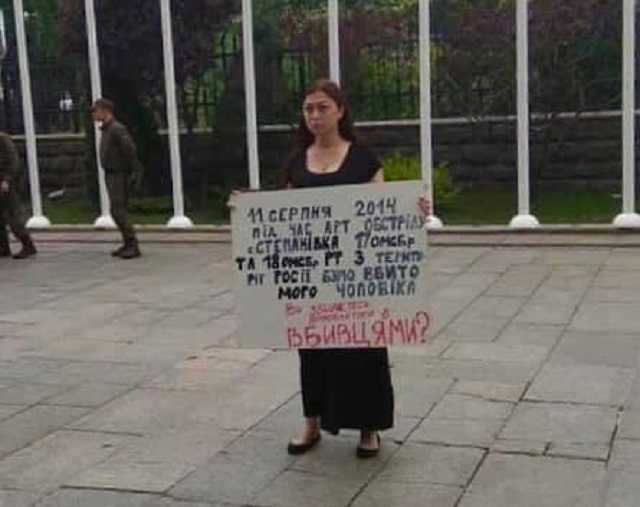 11 СЕРПНЯ 2014
ПІД ЧАС АРТ ОБСТРІЛУ
с СТЕПАНІВКА 17 ОМСБР
ТА 18 ОМСБР РТ З ТЕРИТО
РІЇ РОСІЇ БУЛО ВБИТО
МОГО ЧОЛОВІКА
ВИ
В
ВБИВЦЯМИ?